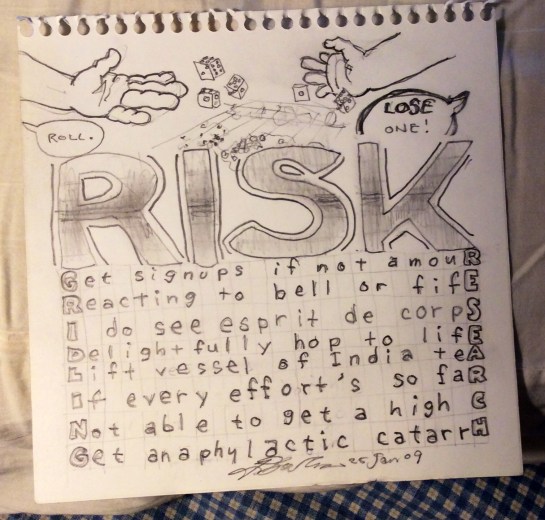 ROLL.
LOSE
ONE!
RISK
Get signups if not amouR
Reacting to bell or fifE
I do see esprit de corpS
Delightfully hop to lifE
Lift vessel of India teA
If every effort's so faR
Not able to get a high C
Get anaphylactic catarrH
25 Jan 09